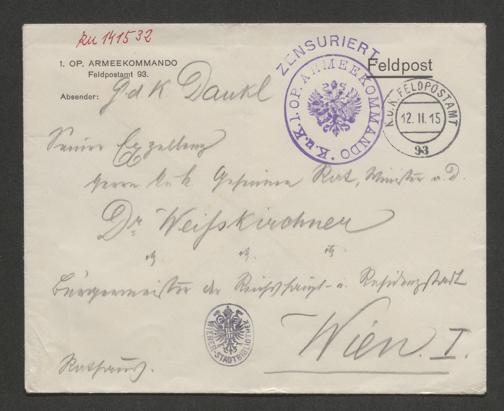 ku 141532
1. OP. ARMEEKOMMANDO
Feldpostamt 93.
Absender: G d K Dankl
ZENSURIERT
K.u.K. 1. OP. ARMEEKOMMANDO
Feldpost
K.U.K. FELDPOSTAMT
12. II. 15
93
Seiner Exzellenz
Herrn k. k. Geheimen Rat, Minister a. D.
Dr Weiskirchner
Bürgermeister der Reichshaupt- u. Residenzstadt
WIENER STADTBIBLIOTHEK
Wien. I.
Rathaus.